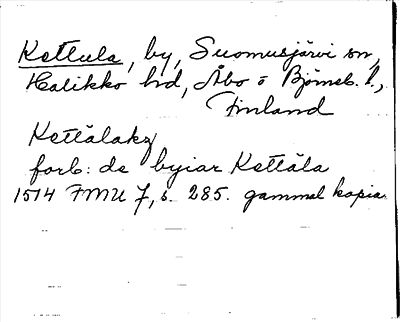 Kettula, by, Suomusjärvi sn,
Halikko hd, Åbo o Björneb. l.,
Finland
Kettälaky
forb: de byiar Kettäla
1514 FMU 7, s. 285. gammal kopia